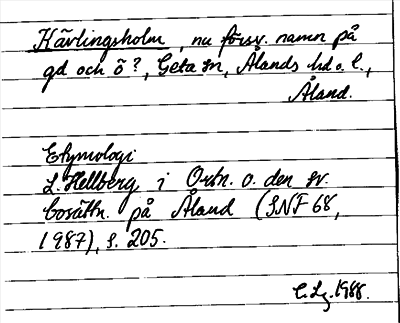 Hävlingsholm, nu försv. namn på
gd och ö?, Geta sn, Ålands hd o. l.,
Åland.
Etymologi
L. Hellberg i Ortn. o. den sv.
bosättn. på Åland (SNF 68,
1987), s. 205.
1988.